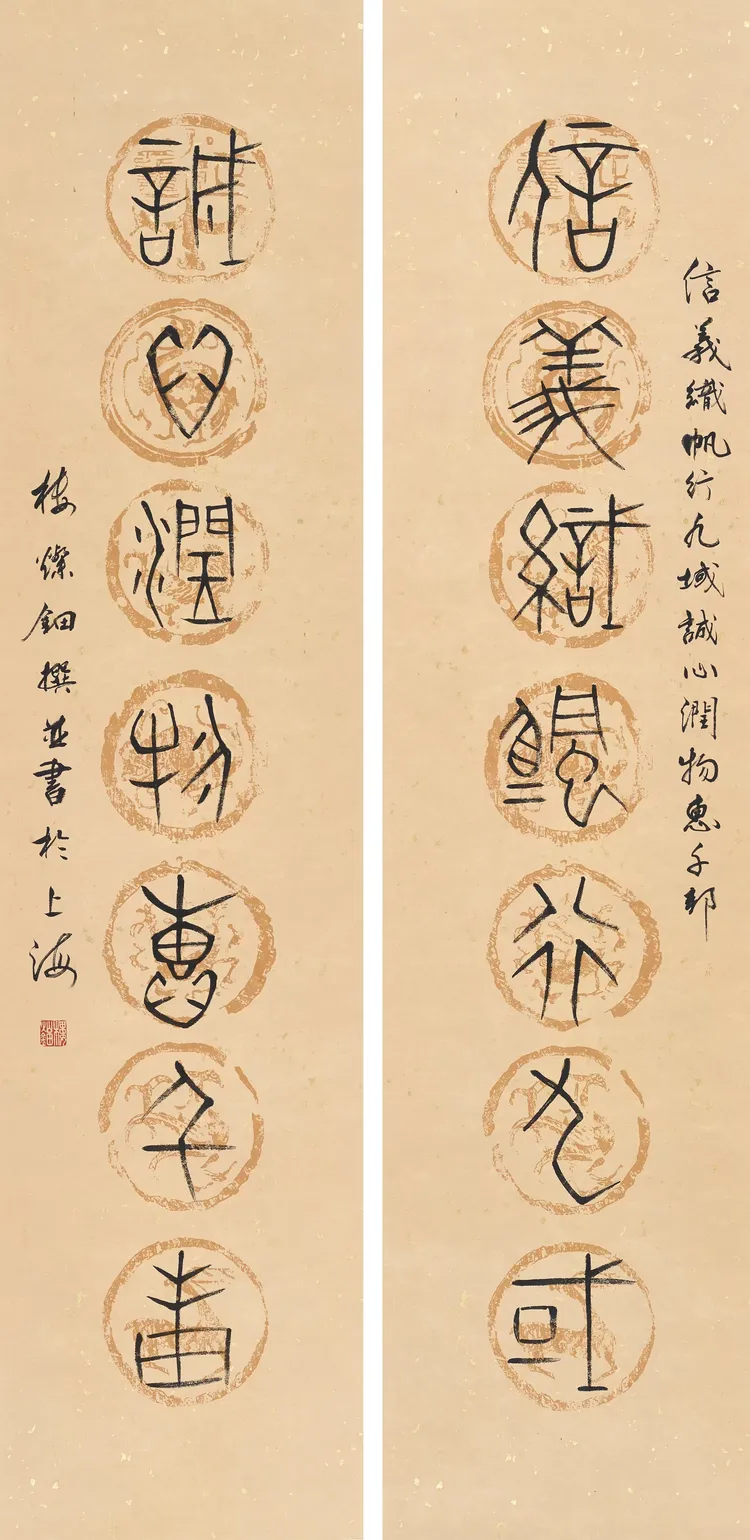 信義織帆行九域
信義織帆行九域誠心潤物惠千邦
誠心潤物惠千邦
樓燦鈿撰並書於上海